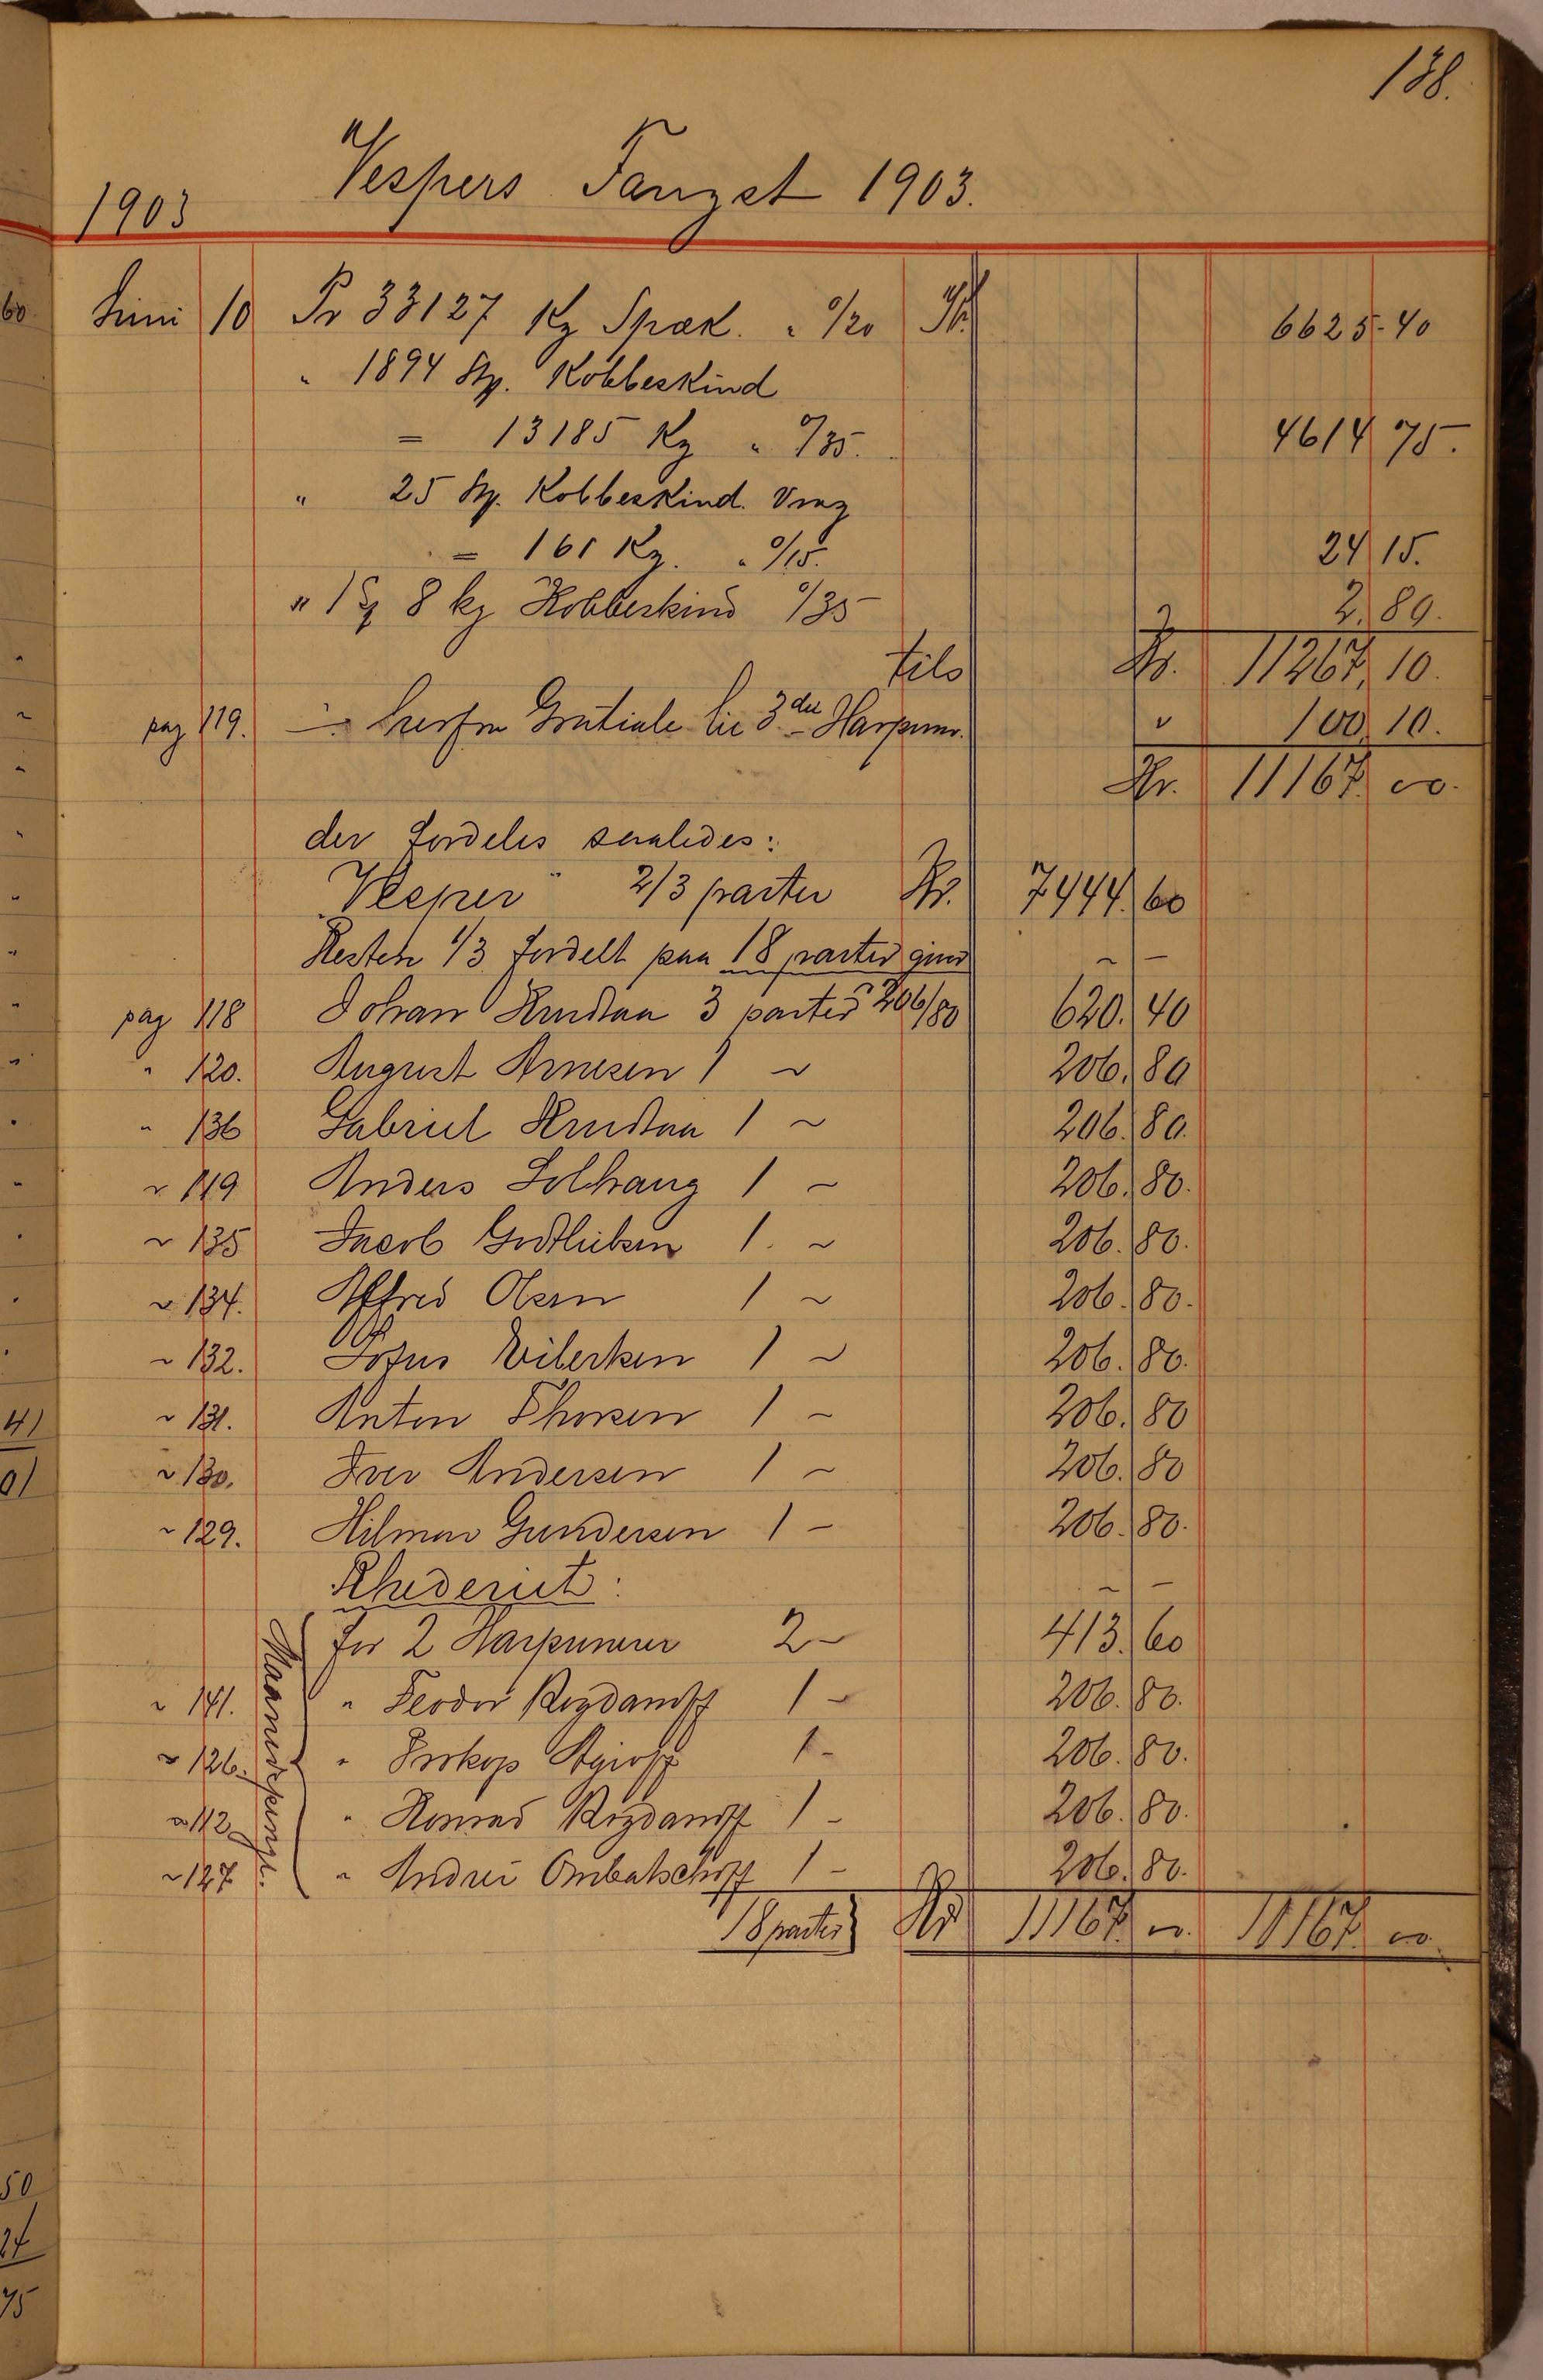 138.
1903 Vespers Fangst 1903.
Juni 10 Pr 33127 Kg Spæk. " 0/20 Kr. 6625.40
" 1894 Stk. Kobbeskind
= 13185 Kg " 0/35. 4614 75.
" 25 Stk. Kobbeskind. Vrag
= 161 Kg. " 0/15. 24 15.
" 1 Stk 8 kg Kobbeskind 0/35 2.80.
tils Kr. 11267.10.
pag 119. ÷ herfra Gratiale til 3die Harpuner. " 100.10.
Kr. 11167. 00.
der fordeles saaledes:
"Vesper" 2/3 parter Kr. 7444.60
Resten 1/3 fordelt paa 18 parter giver ~ —
pag 118 Johan Hrudtaa 3 parter à 206/80 620.40
" 120. August Arnesen 1 ~ 206.80
" 136 Gabriel Hrudtaa 1 ~ 206.80.
" 119 Anders Solhaug 1 ~ 206.80.
" 135 Jacob Godtliebsen 1. ~ 206.80.
" 134. Alfred Olsen 1 ~ 206.80.
" 132. Sofus Eilertsen 1 ~ 206.80.
" 131. Anton Thorsen 1 ~ 206.80
" 130. Iver Andersen 1 ~ 206.80
" 129. Hilmar Gundersen 1 – 206.80.
Rhederiet: ~ —
for 2 Harpunerer 2 – 413.60
" 141. " Feodor 1 – 206.80.
" 126. " Prokop 1 – 206.80.
" 112 " Konrad 1 – 206.80.
" 127 " Andrei 1 – 206.80.
Maanedspenge.
18 parter Kr 11167. 00. 11167. 00.
60
41
01
50
24
75